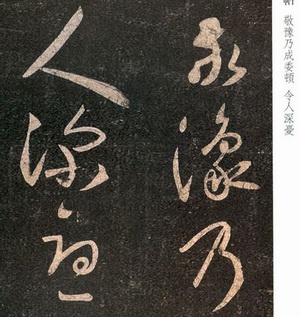 帖 敬豫乃成委頓 令人深憂
敬豫乃
人深憂